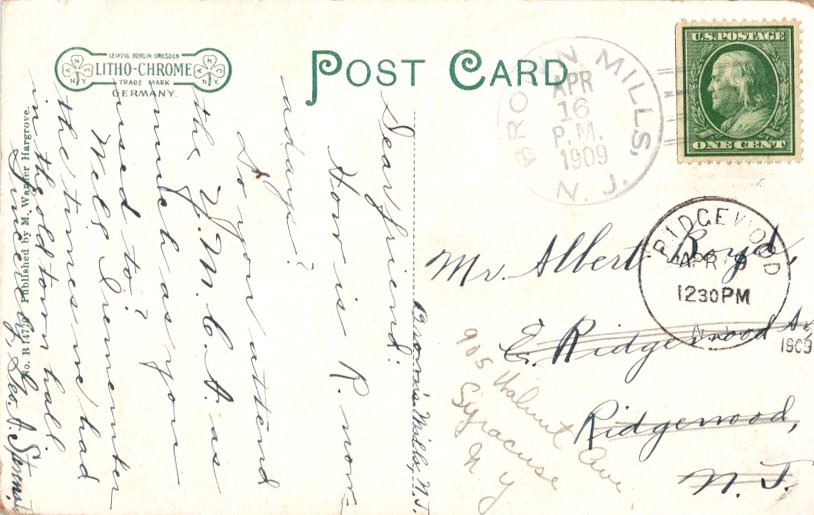 LEIPZIG BERLIN DRESDEN
LITHO-CHROME
N Y
N Y
TRADE MARK
GERMANY.
POST CARD
BROWN MILLS,
APR
16
P.M.
1909
N. J.
U.S. POSTAGE
ONE CENT
RIDGEWOOD
APR
1230PM
N.J.
1909
Mr. Albert Boyd,
E. Ridgewood Av,
Ridgewood,
N. J.
905 Walnut Ave
Syracuse
N Y
Brown's Mills, N.J.
Dear friend:
How is R. now-
adays?
Do you attend
the Y.M.C.A. as
much as you
used to?
Well I remember
the times we had
in the old town hall.
Sincerely, Geo. A.
Published by M. Warner Hargrove.